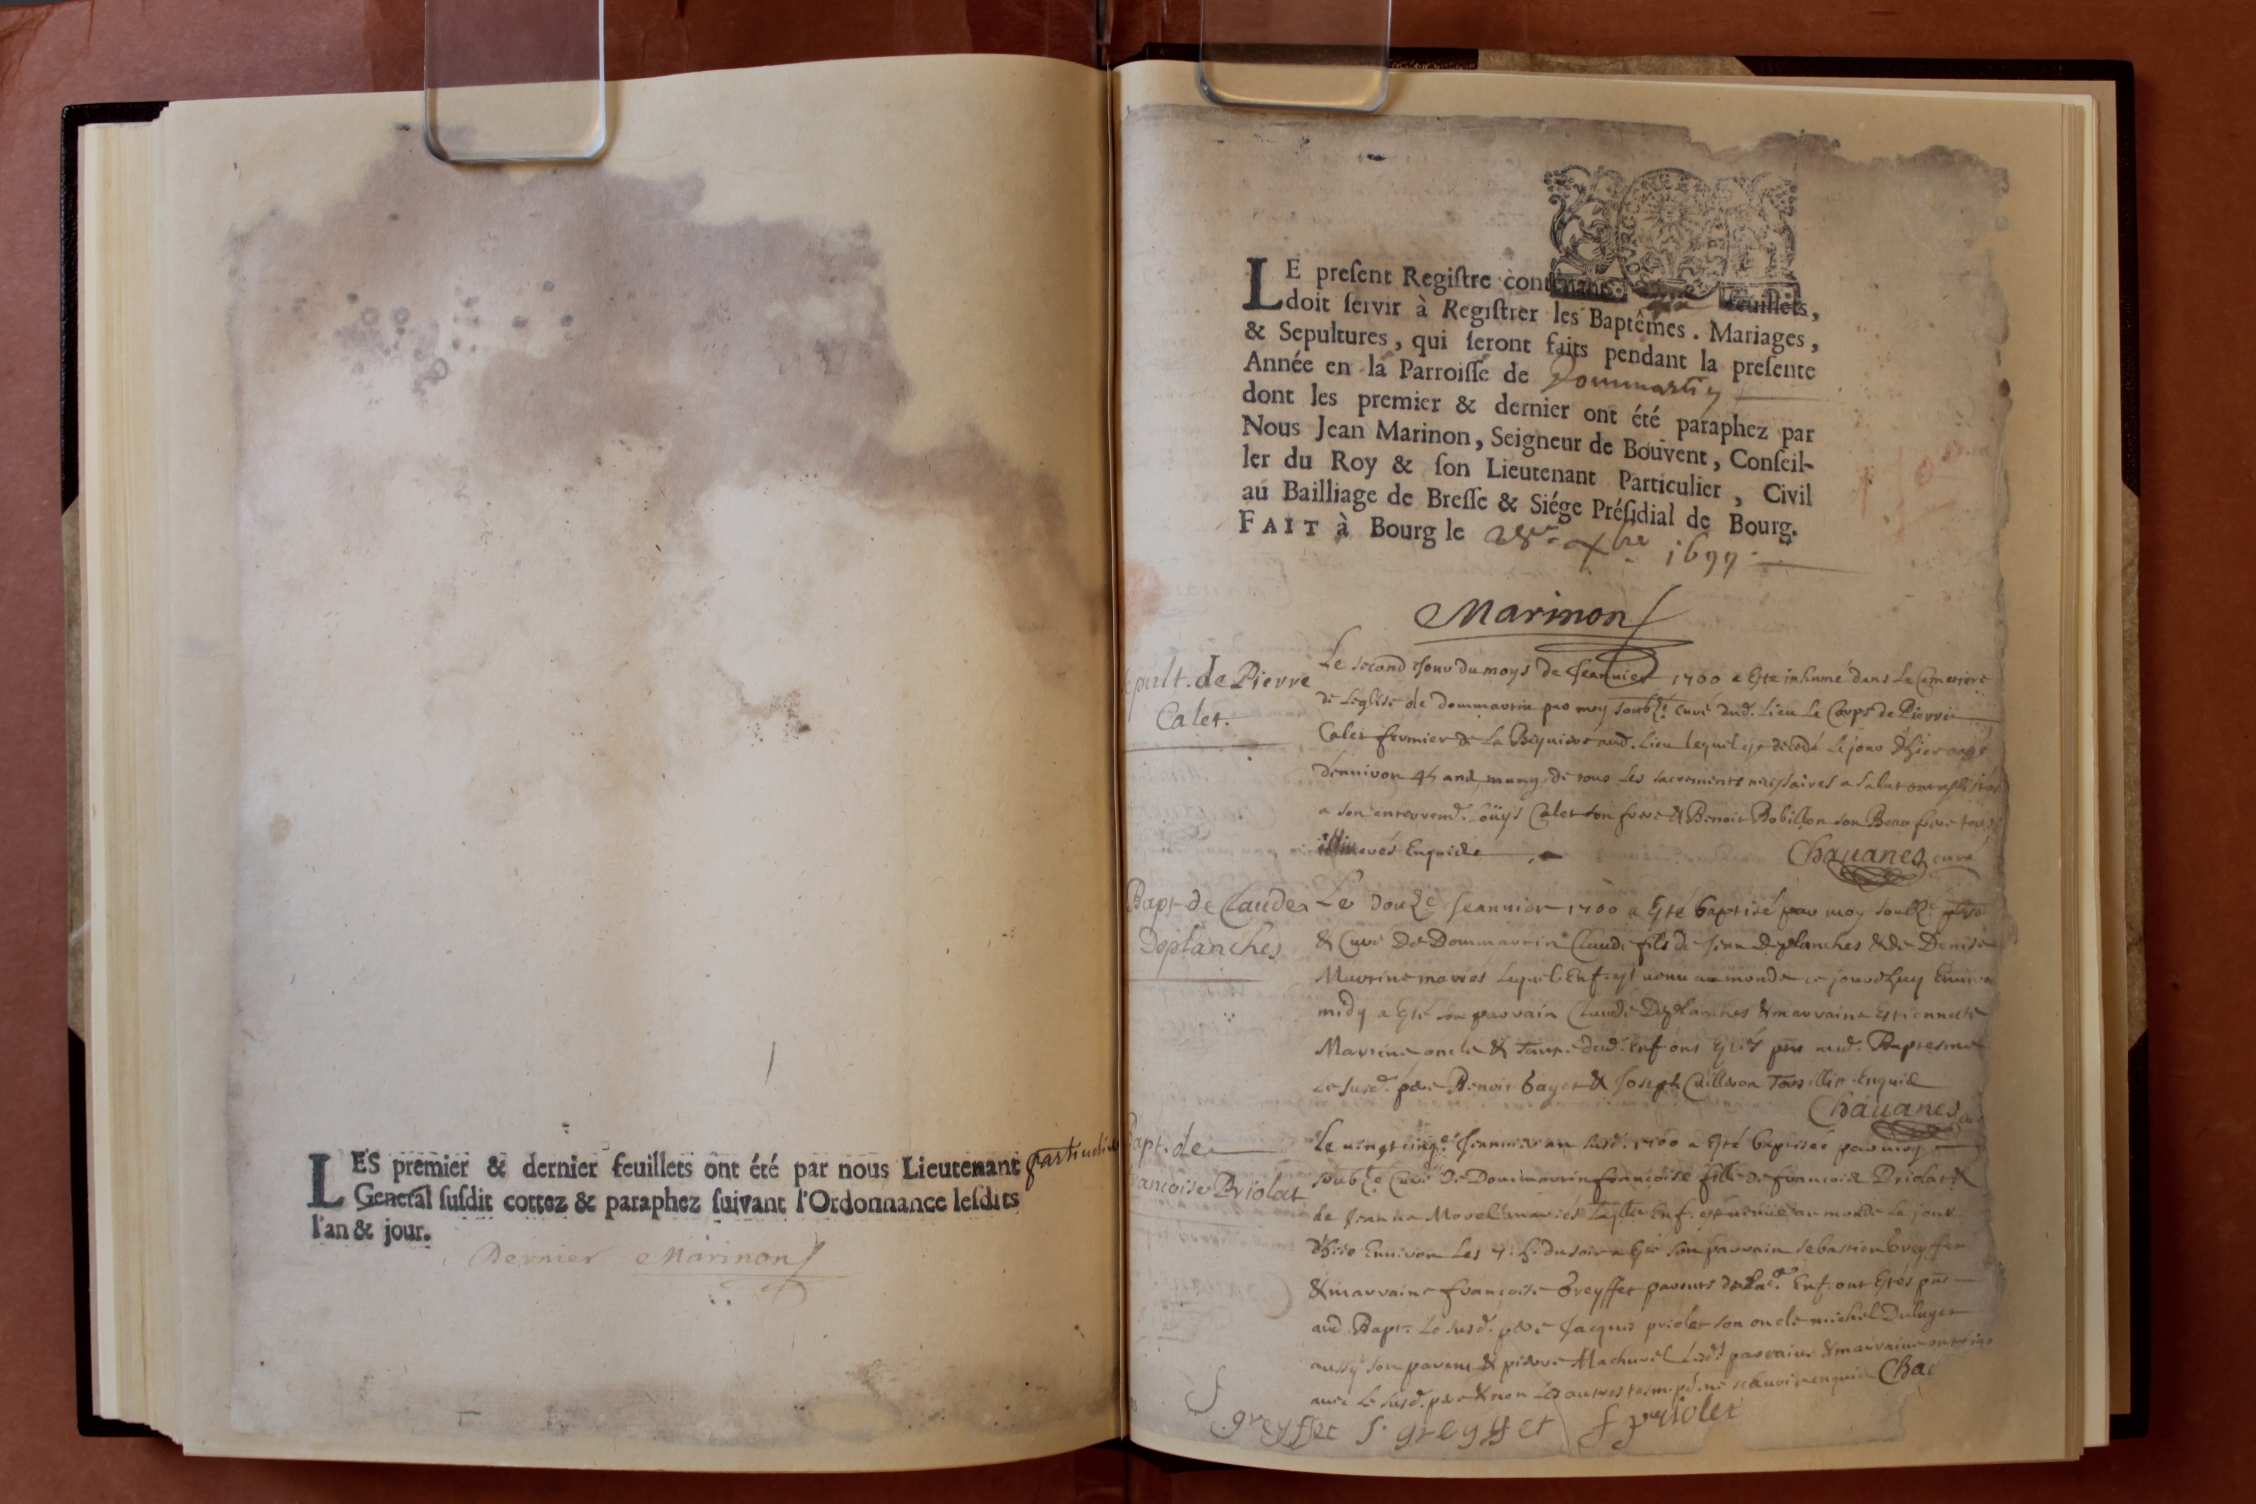 LES premier & dernier feuillets ont été par nous Lieutenant particulier
General susdit cottez & paraphez suivant l'Ordonnance lesdits
l'an & jour.
Dernier Marinon
LE present Registre contenant feuillets,
doit servir à Registrer les Baptêmes. Mariages,
& Sepultures, qui seront faits pendant la presente
Année en la Parroisse de Dommartin
dont les premier & dernier ont été paraphez par
Nous Jean Marinon, Seigneur de Bouvent, Conseil-
ler du Roy & son Lieutenant Particulier, Civil
au Bailliage de Bresse & Siége Présidial de Bourg.
FAIT à Bourg le 28e xbre 1699
Marinon
Sepult. de Pierre
Calet.
Le second jour du moys de Jeanuier 1700 a este inhumé dans le Cimetiere
de Leglise de dommartin par moy soubze. curé dud. Lieu Le Corps de Pierre
Calet fermier de La aud. Lieu lequel est decedé le jour d'hier aagé
denuiron 45 ans, muny de tous les sacrements necessaires a salut ont assisté
a son enterremt. Louys Calet son frere & Benoit Robillon son Beau frere tous
illiterés Enquis
Chauanes curé
Bapt de Claude
Deplanches
Le douze Jeanuier 1700 a esté baptisé par moy soubze.
& Curé De Dommartin Claude fils de Jean Deplanches & de Denise
Maurine mariés Lequel Enf. est uenu au monde ce jourdhuy Enuiron
midy a esté son parrain Claude Deplanches & marraine Estiennette
Maurine oncle & Tante dud. Enf ont estés pnts aud. Baptesme
Le susd. pere Benoit bayet & Joseph Cuilleron Tous illit. Enquis
Chauanes
Bapt. de
francoise Priolat
Le uingt cinqe. Jeanuier an susd. 1700 a esté baptisée par moy
soubze Curé De Dommartin francoise fille de francois Priolat &
de Jeanne Morel mariés laqlle Enf. est uenue au monde le jour
d'hier Enuiron les 7. h. du soir a esté son parrain sebastien Greyffet
& marraine francoise Greyffet parents de lad. Enf. ont estes pnts
aud Bapt. Le susd. pere Jacques priolet son oncle michel Duluget
aussy son parent & pierre Machurel Lesd. parrain & marraine ont signé
auec Le susd. pere & non Les autres tesm. pr. ne scauoir enquis Cha
f greyffet s. greyffet f priolet